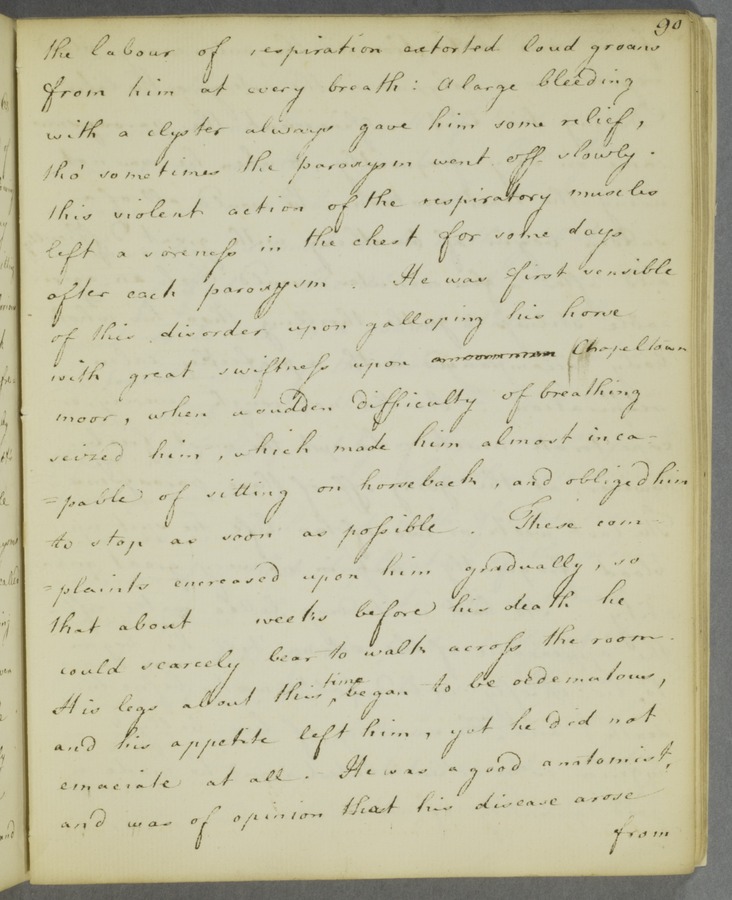 90
the labour of respiration extorted loud groans
from him at every breath: A large bleeding
with a clyster always gave him some relief,
tho' sometimes the paroxysm went off slowly.
this violent action of the respiratory muscles
left a soreness in the chest for some days
after each paroxysm. He was first sensible
of this disorder upon galloping his horse
with great swiftness upon Chapeltown
moor, when a sudden difficulty of breathing
seized him, which made him almost inca-
=pable of sitting on horseback, and obliged him
to stop as soon as possible. These com-
=plaints encreased upon him gradually, so
that about weeks before his death he
could scarcely bear to walk across the room.
His legs about this time began to be oedematous,
and his appetite left him, yet he did not
emaciate at all. He was a good anatomist,
and was of opinion that his disease arose
from